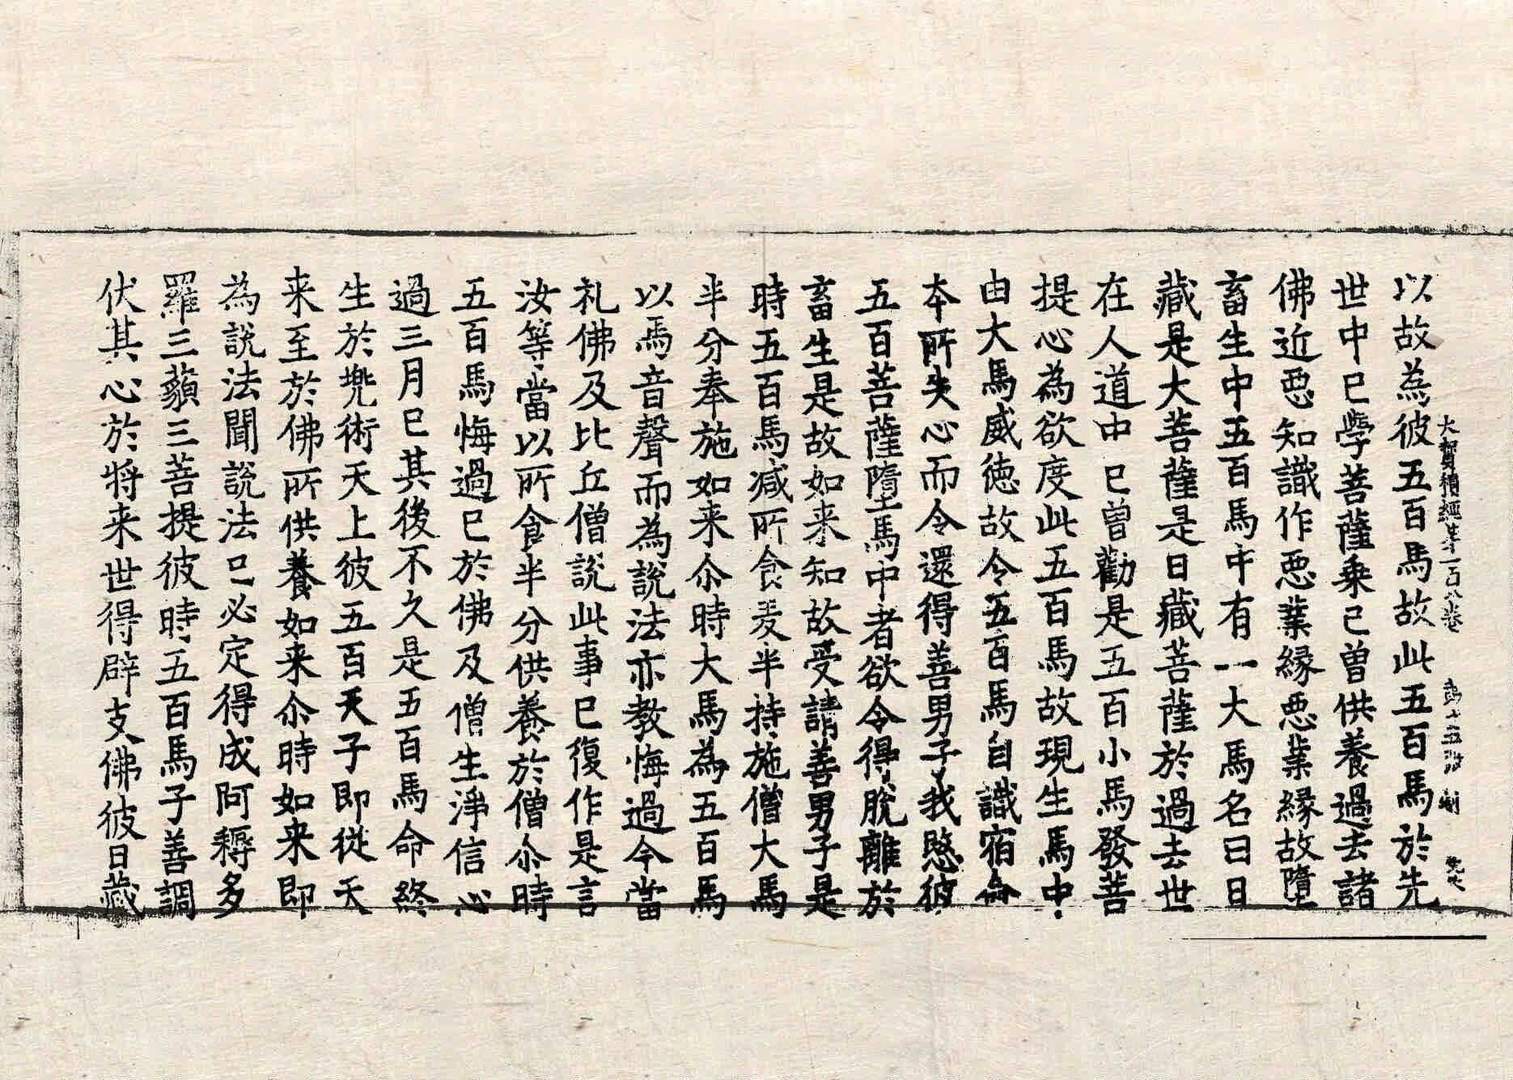 大寶積經第一百八卷 第十五張 刺
以故為彼五百馬故此五百馬於先
世中已學菩薩乗已曽供養過去諸
佛近惡知識作惡業縁惡業縁故墮
畜生中五百馬中有一大馬名曰日
藏是大菩薩是日藏菩薩於過去世
在人道中已曽勸是五百小馬發菩
提心為欲度此五百馬故現生馬中
由大馬威徳故令五百馬自識宿命
本所失心而令還得善男子我愍彼
五百菩薩墮馬中者欲令得脫離於
畜生是故如来知故受請善男子是
時五百馬減所食麦半持施僧大馬
半分奉施如来尒時大馬為五百馬
以馬音聲而為說法亦教悔過今當
礼佛及比丘僧說此事已復作是言
汝等當以所食半分供養於僧尒時
五百馬悔過已於佛及僧生淨信心
過三月已其後不久是五百馬命終
生於兠術天上彼五百天子即從天
来至於佛所供養如来尒時如来即
為說法聞說法已必定得成阿耨多
羅三藐三菩提彼時五百馬子善調
伏其心於將来世得辟支佛彼日藏